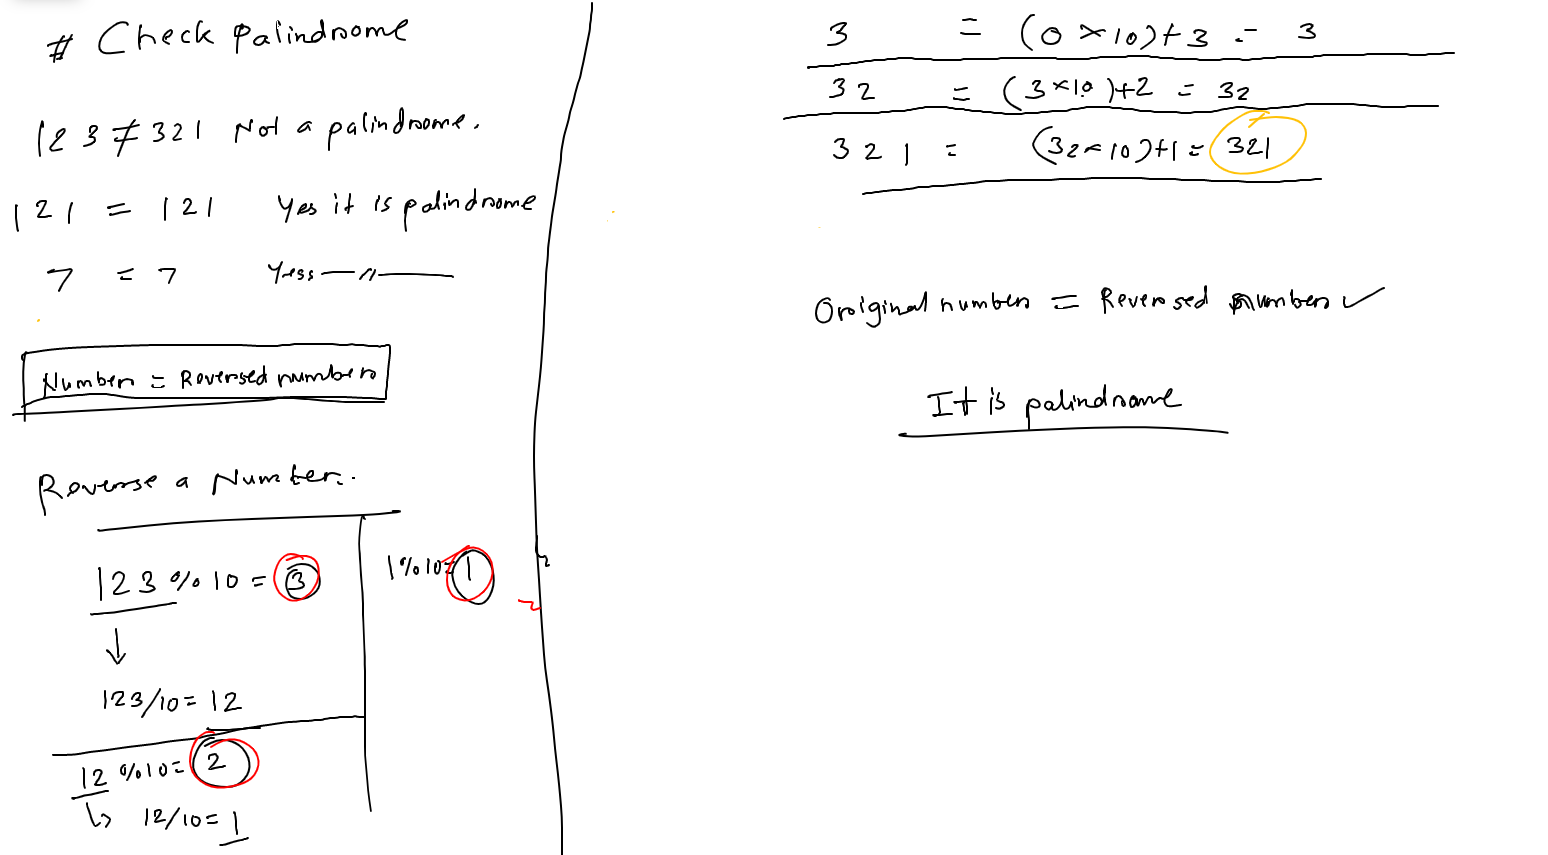 # Check palindrome
123 ≠ 321 Not a palindrome.
121 = 121 Yes it is palindrome
7 = 7 Yess —〃—
Number = Reversed number
Reverse a Number.
123 % 10 = 3
↓
123/10 = 12
12 % 10 = 2
↳ 12/10 = 1
1 % 10 = 1
3 = (0 × 10) + 3 = 3
32 = (3 × 10) + 2 = 32
321 = (32 × 10) + 1 = 321
Original number = Reversed number ✓
It is palindrome